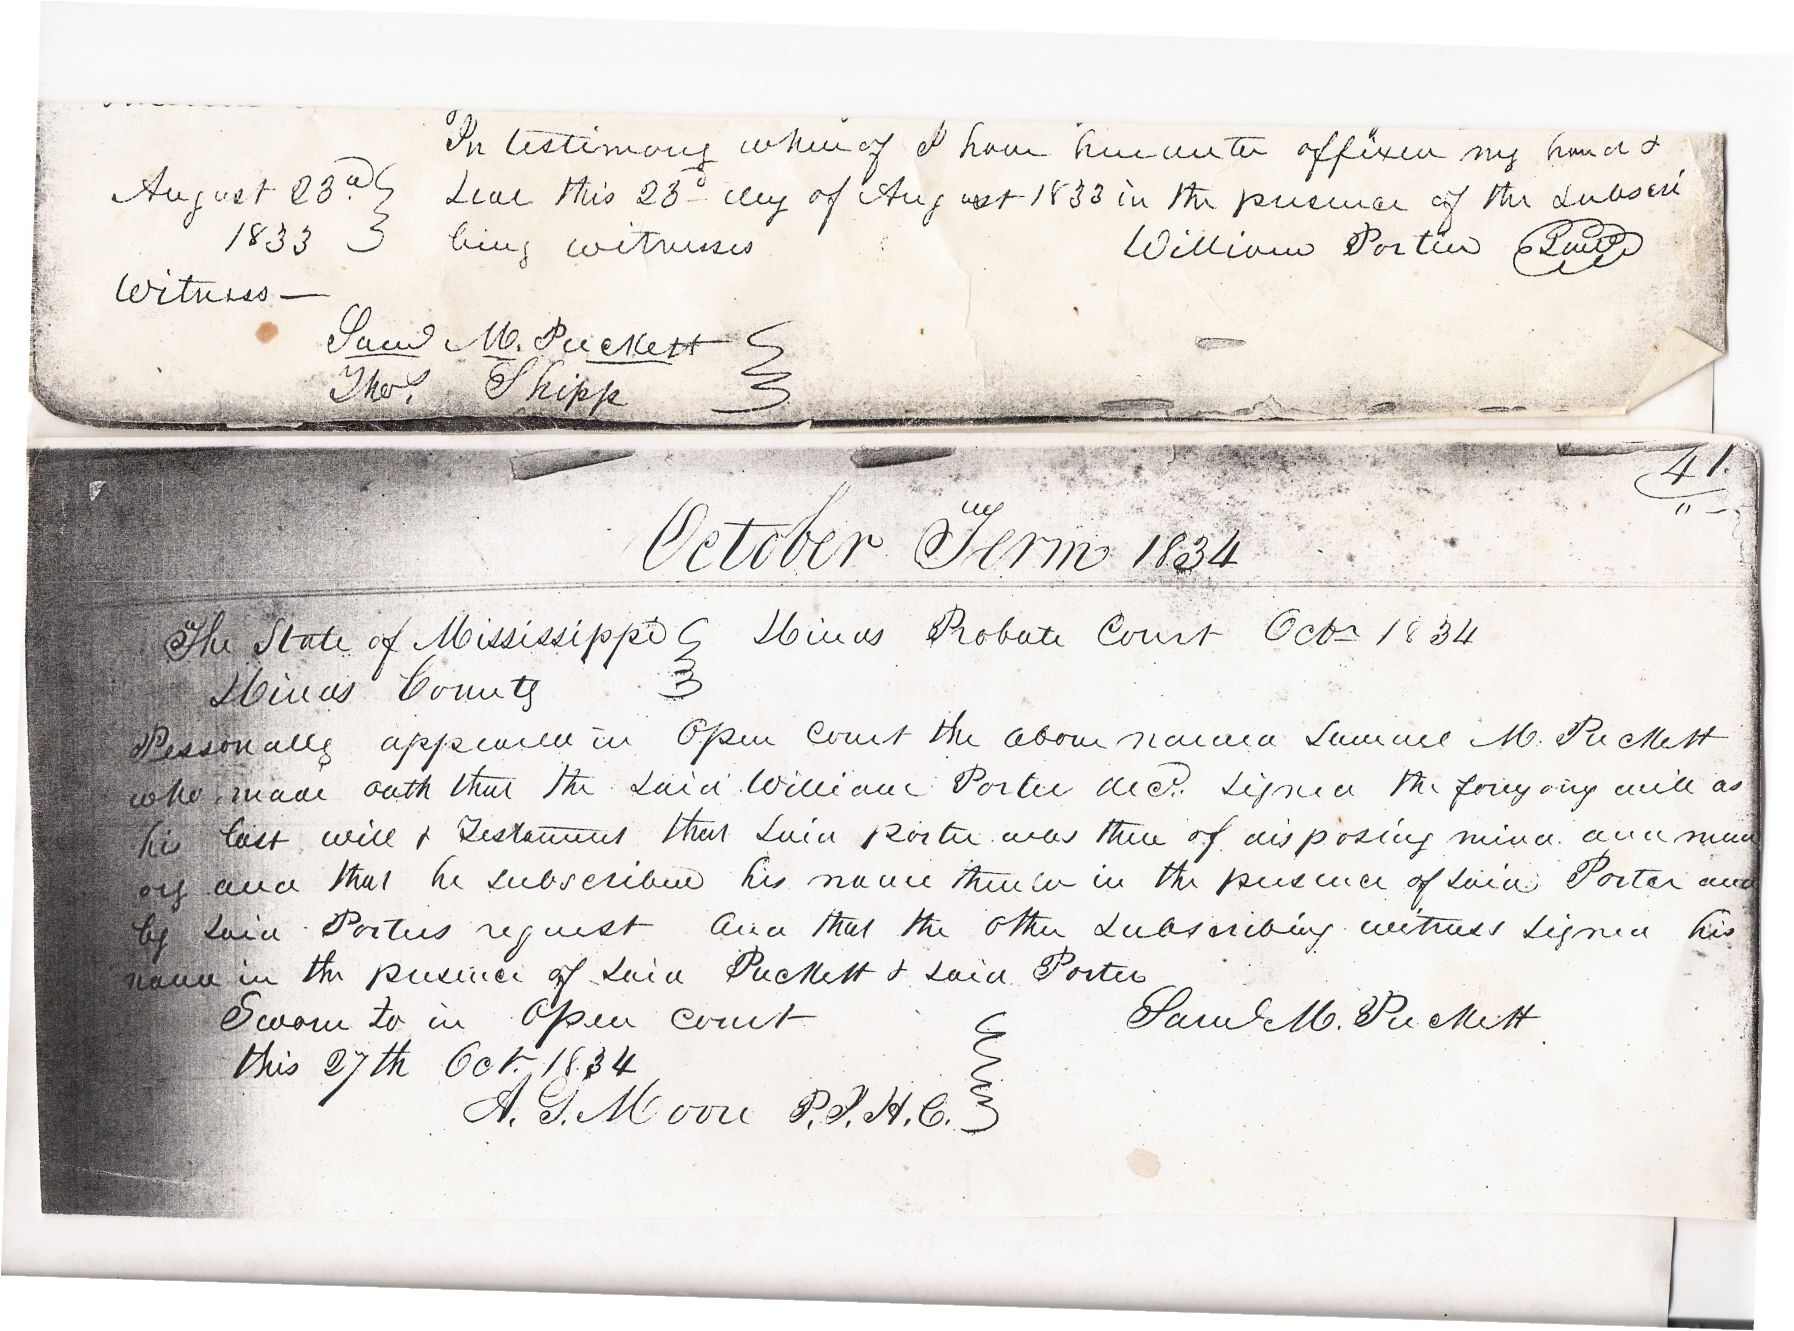 In testimony whereof I have hereunto affixed my hand &
August 23rd Seal this 23d day of August 1833 in the presence of the subscri
1833 bing witnesses William Porter Seal
Witness —
Saml M. Puckett
Thos. Shipp
41
October Term 1834
The State of Mississippi Hinds Probate Court Octr 1834
Hinds County
Personally appeared in Open Court the above named Samuel M. Puckett
who made oath that the said William Porter decd. signed the foregoing will as
his last will & Testament that said porter was then of disposing mind and mem
ory and that he subscribed his name thereto in the presence of said Porter and
by said Porters request and that the other subscribing witness signed his
name in the presence of said Puckett & said Porter
Sworn to in Open court Saml M. Puckett
this 27th Oct. 1834
A. G. Moore P. J. H. C.